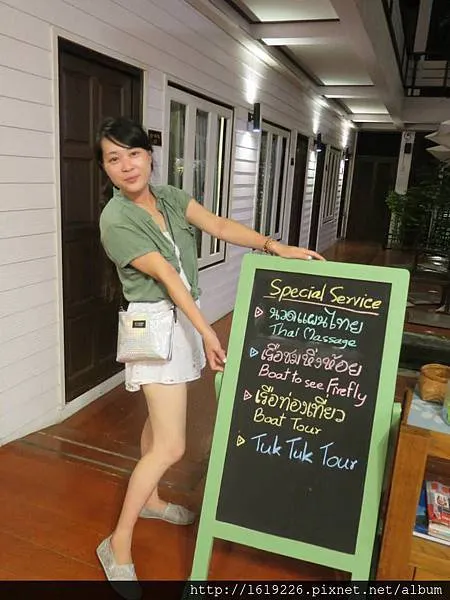 Special Service
นวดแผนไทย
Thai Massage
เรือชมหิ่งห้อย
Boat to see Firefly
เรือท่องเที่ยว
Boat Tour
Tuk Tuk Tour
http://1619226.pixnet.net/album